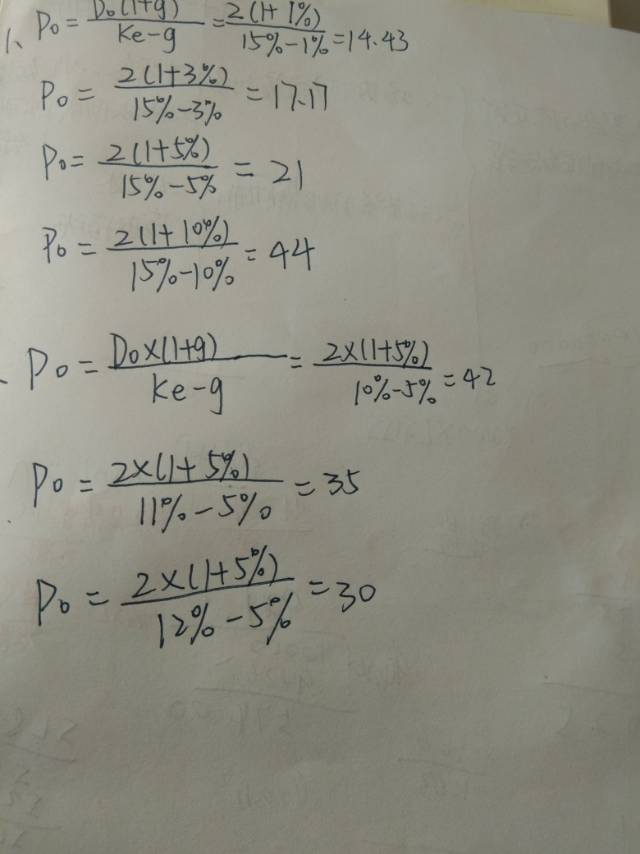 1、P₀ = D₀(1+g) / Ke-g = 2(1+1%) / 15%-1% = 14.43
P₀ = 2(1+3%) / 15%-3% = 17.17
P₀ = 2(1+5%) / 15%-5% = 21
P₀ = 2(1+10%) / 15%-10% = 44
、P₀ = D₀×(1+g) / Ke-g = 2×(1+5%) / 10%-5% = 42
P₀ = 2×(1+5%) / 11%-5% = 35
P₀ = 2×(1+5%) / 12%-5% = 30